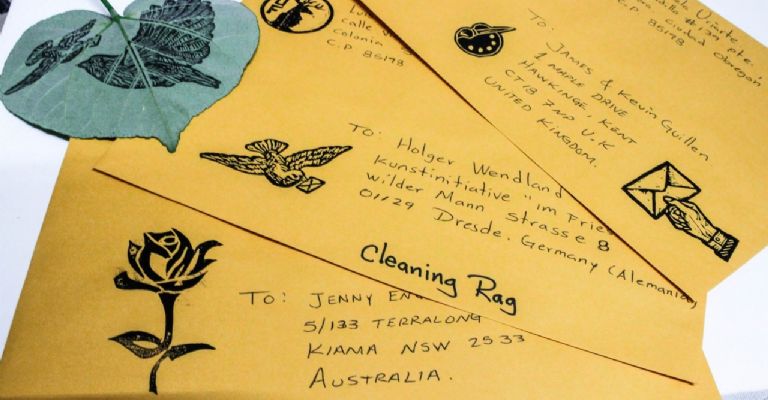 calle
Colonia
C.P 85198
C.P. 85198
To:
JAMES & Kevin Guillen
1 MAPLE DRIVE
HAWKINGE, KENT
CT18 7ND U.K
UNITED KINGDOM.
To: Holger Wendland
Kunstinitiative "im Frie
wilder Mann Strasse 8
01129 Dresde. Germany (Alemania)
Cleaning Rag
To: JENNY EN
5/133 TERRALONG
KIAMA NSW 2533
AUSTRALIA.